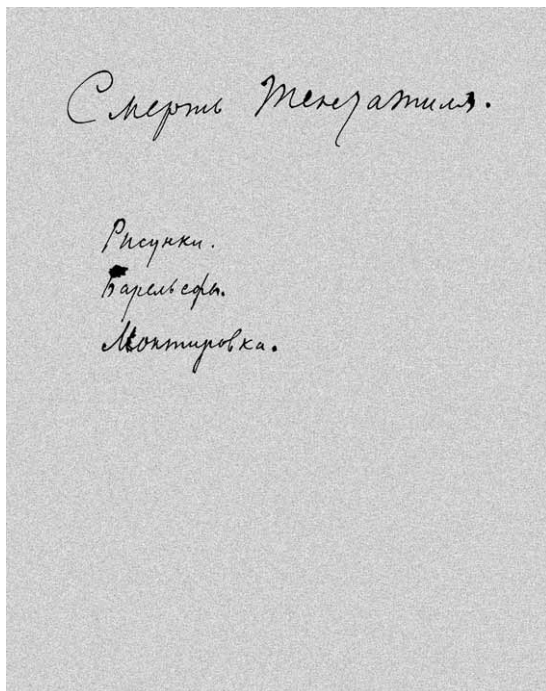 Смерть Тентажиля.
Рисунки.
Барельефы.
Монтировка.